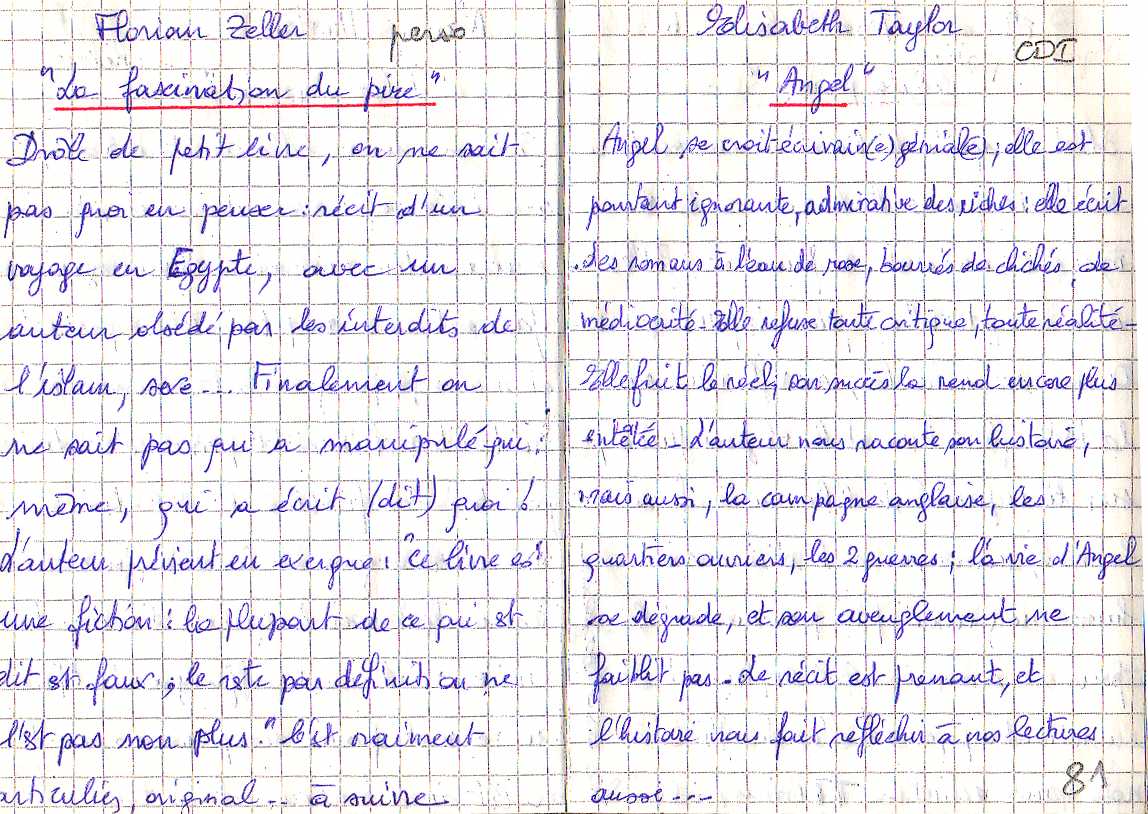 Florian Zeller perso
"La fascination du pire"
Drôle de petit livre, on ne sait
pas quoi en penser : récit d'un
voyage en Egypte, avec un
auteur obsédé par les interdits de
l'islam, sexe... Finalement on
ne sait pas qui a manipulé qui ;
même, qui a écrit (dit) quoi !
L'auteur prévient en exergue : "ce livre est
une fiction : la plupart de ce qui est
dit est faux ; le reste par définition ne
l'est pas non plus." C'est vraiment
particulier, original... à suivre
Elisabeth Taylor
CDI
"Angel"
Angel se croit écrivain(e) génial(e) ; elle est
pourtant ignorante, admirative des riches : elle écrit
des romans à l'eau de rose, bourrés de clichés, de
médiocrité - Elle refuse toute critique, toute réalité -
Elle fuit le réel ; son succès la rend encore plus
entêtée - L'auteur nous raconte son histoire,
mais aussi, la campagne anglaise, les
quartiers ouvriers, les 2 guerres ; la vie d'Angel
se dégrade, et son aveuglement ne
faiblit pas - Le récit est prenant, et
l'histoire nous fait réfléchir à nos lectures
aussi...
81